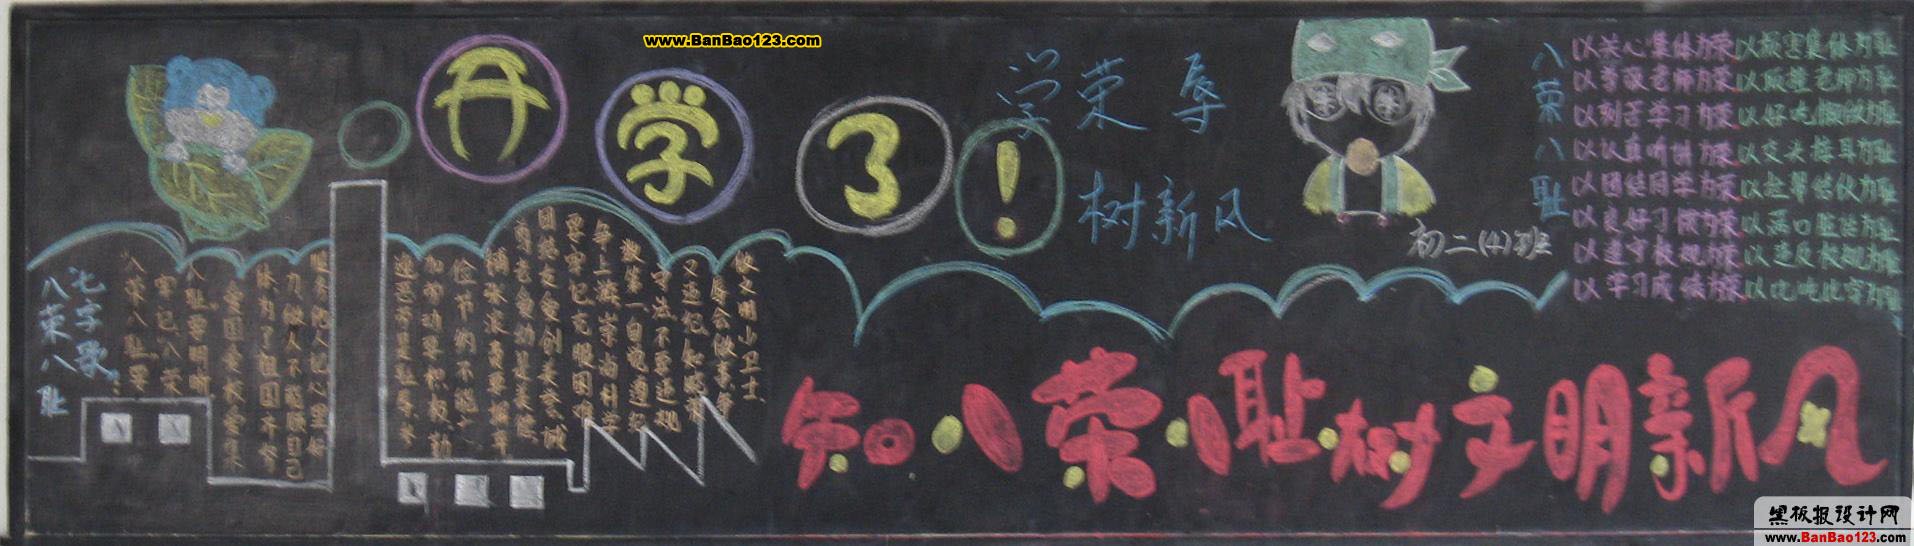 www.BanBao123.com
开学了!
学荣辱
树新风
初二(4)班
八荣八耻
以关心集体为荣以损害集体为耻
以尊敬老师为荣以顶撞老师为耻
以刻苦学习为荣以好吃懒做为耻
以认真听讲为荣以交头接耳为耻
以团结同学为荣以拉帮结伙为耻
以良好习惯为荣以满口脏话为耻
以遵守校规为荣以违反校规为耻
以学习成绩为荣以比吃比穿为耻
七字歌
八荣八耻
"八荣八耻要
牢记八荣
八耻要明晰
爱国爱校爱集
体为了祖国不
力做人不能顾自己
团结友爱创
尊老爱幼是美德
铺张浪费要摒弃
俭节约不能
加劳动要积极勤
要牢记克服困难
争上游学科学
数第一自觉遵纪
守法不要违规
做文明小卫士
知八荣八耻树文明新风
黑板报设计网
www.BanBao123.com